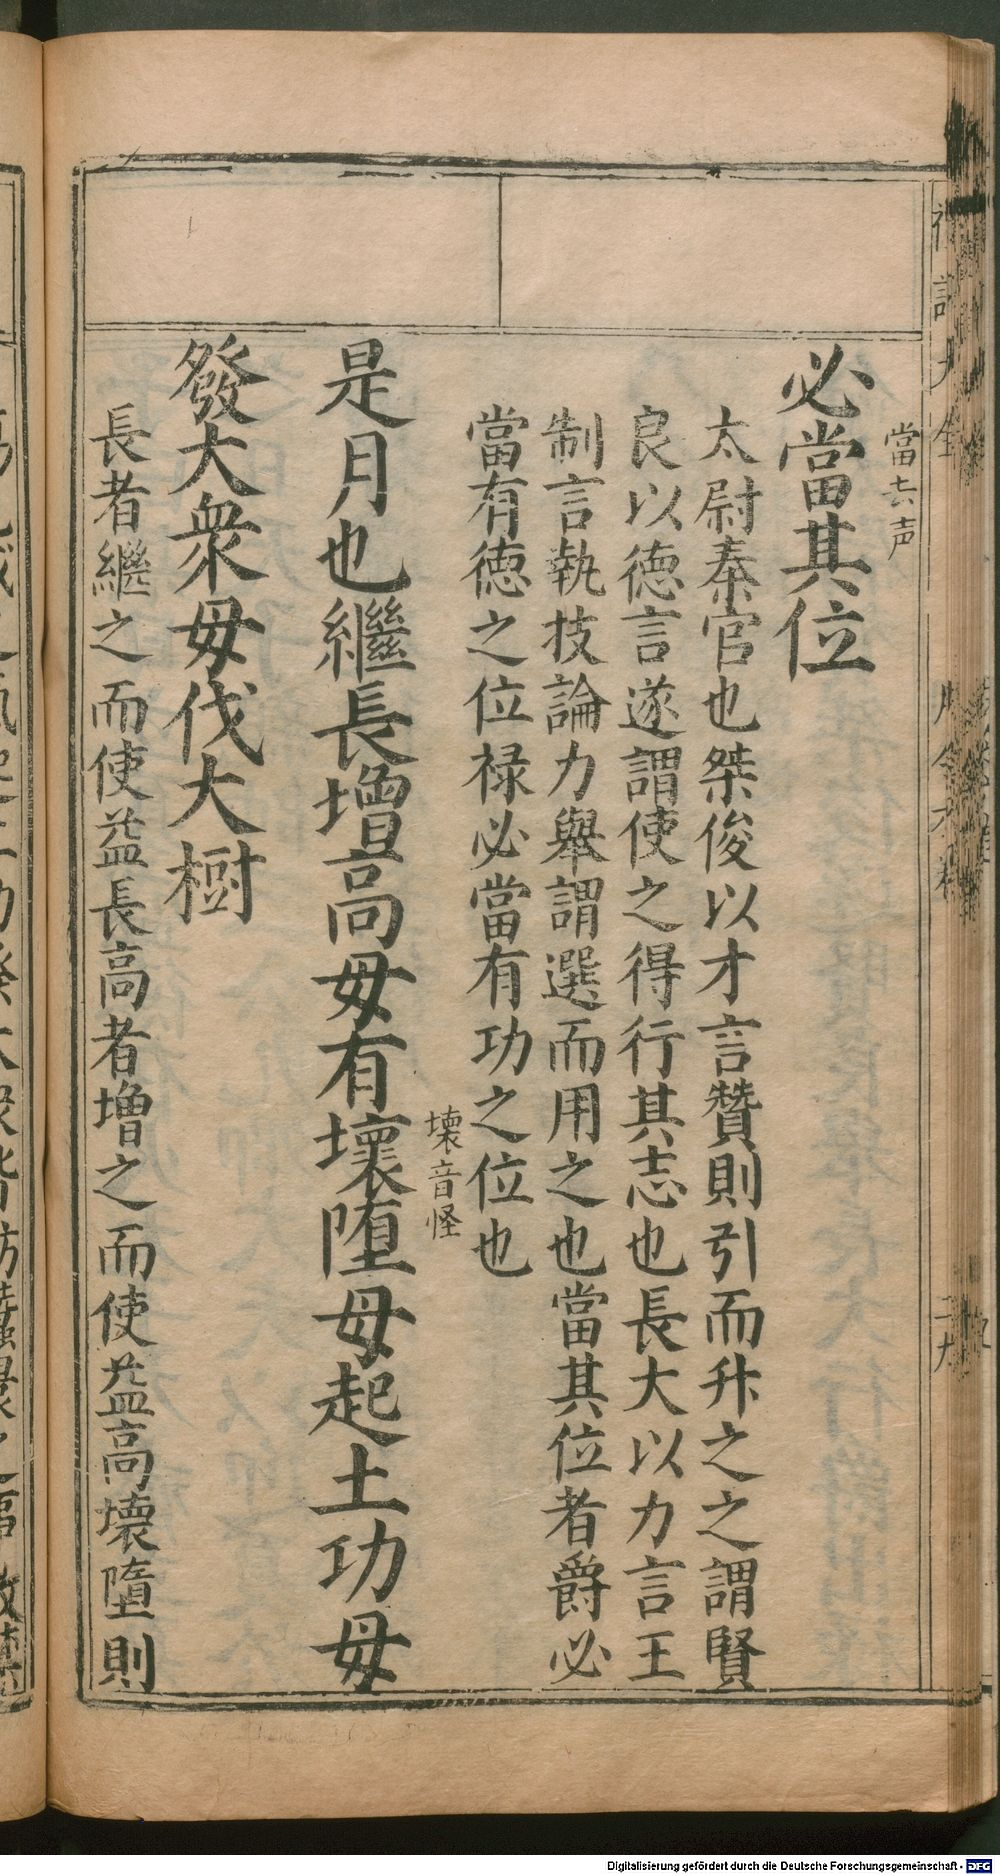 當去声
必當其位
太尉秦官也桀俊以才言贊則引而升之之謂賢
良以德言遂謂使之得行其志也長大以力言王
制言執技論力舉謂選而用之也當其位者爵必
當有德之位祿必當有功之位也
壊音怪
是月也繼長增高毋有壞墮毋起土功毋
發大衆毋伐大樹
長者繼之而使益長高者增之而使益高壊墮則
Digitalisierung gefördert durch die Deutsche Forschungsgemeinschaft - DFG